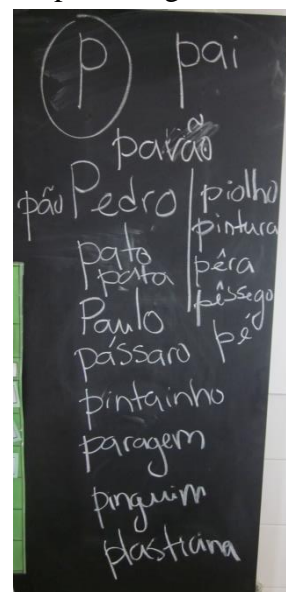 p pai
pavão
pão Pedro
pato
pata
Paulo
pássaro
pintainho
paragem
pinguim
plasticina
piolho
pintura
pêra
pêssego
pé